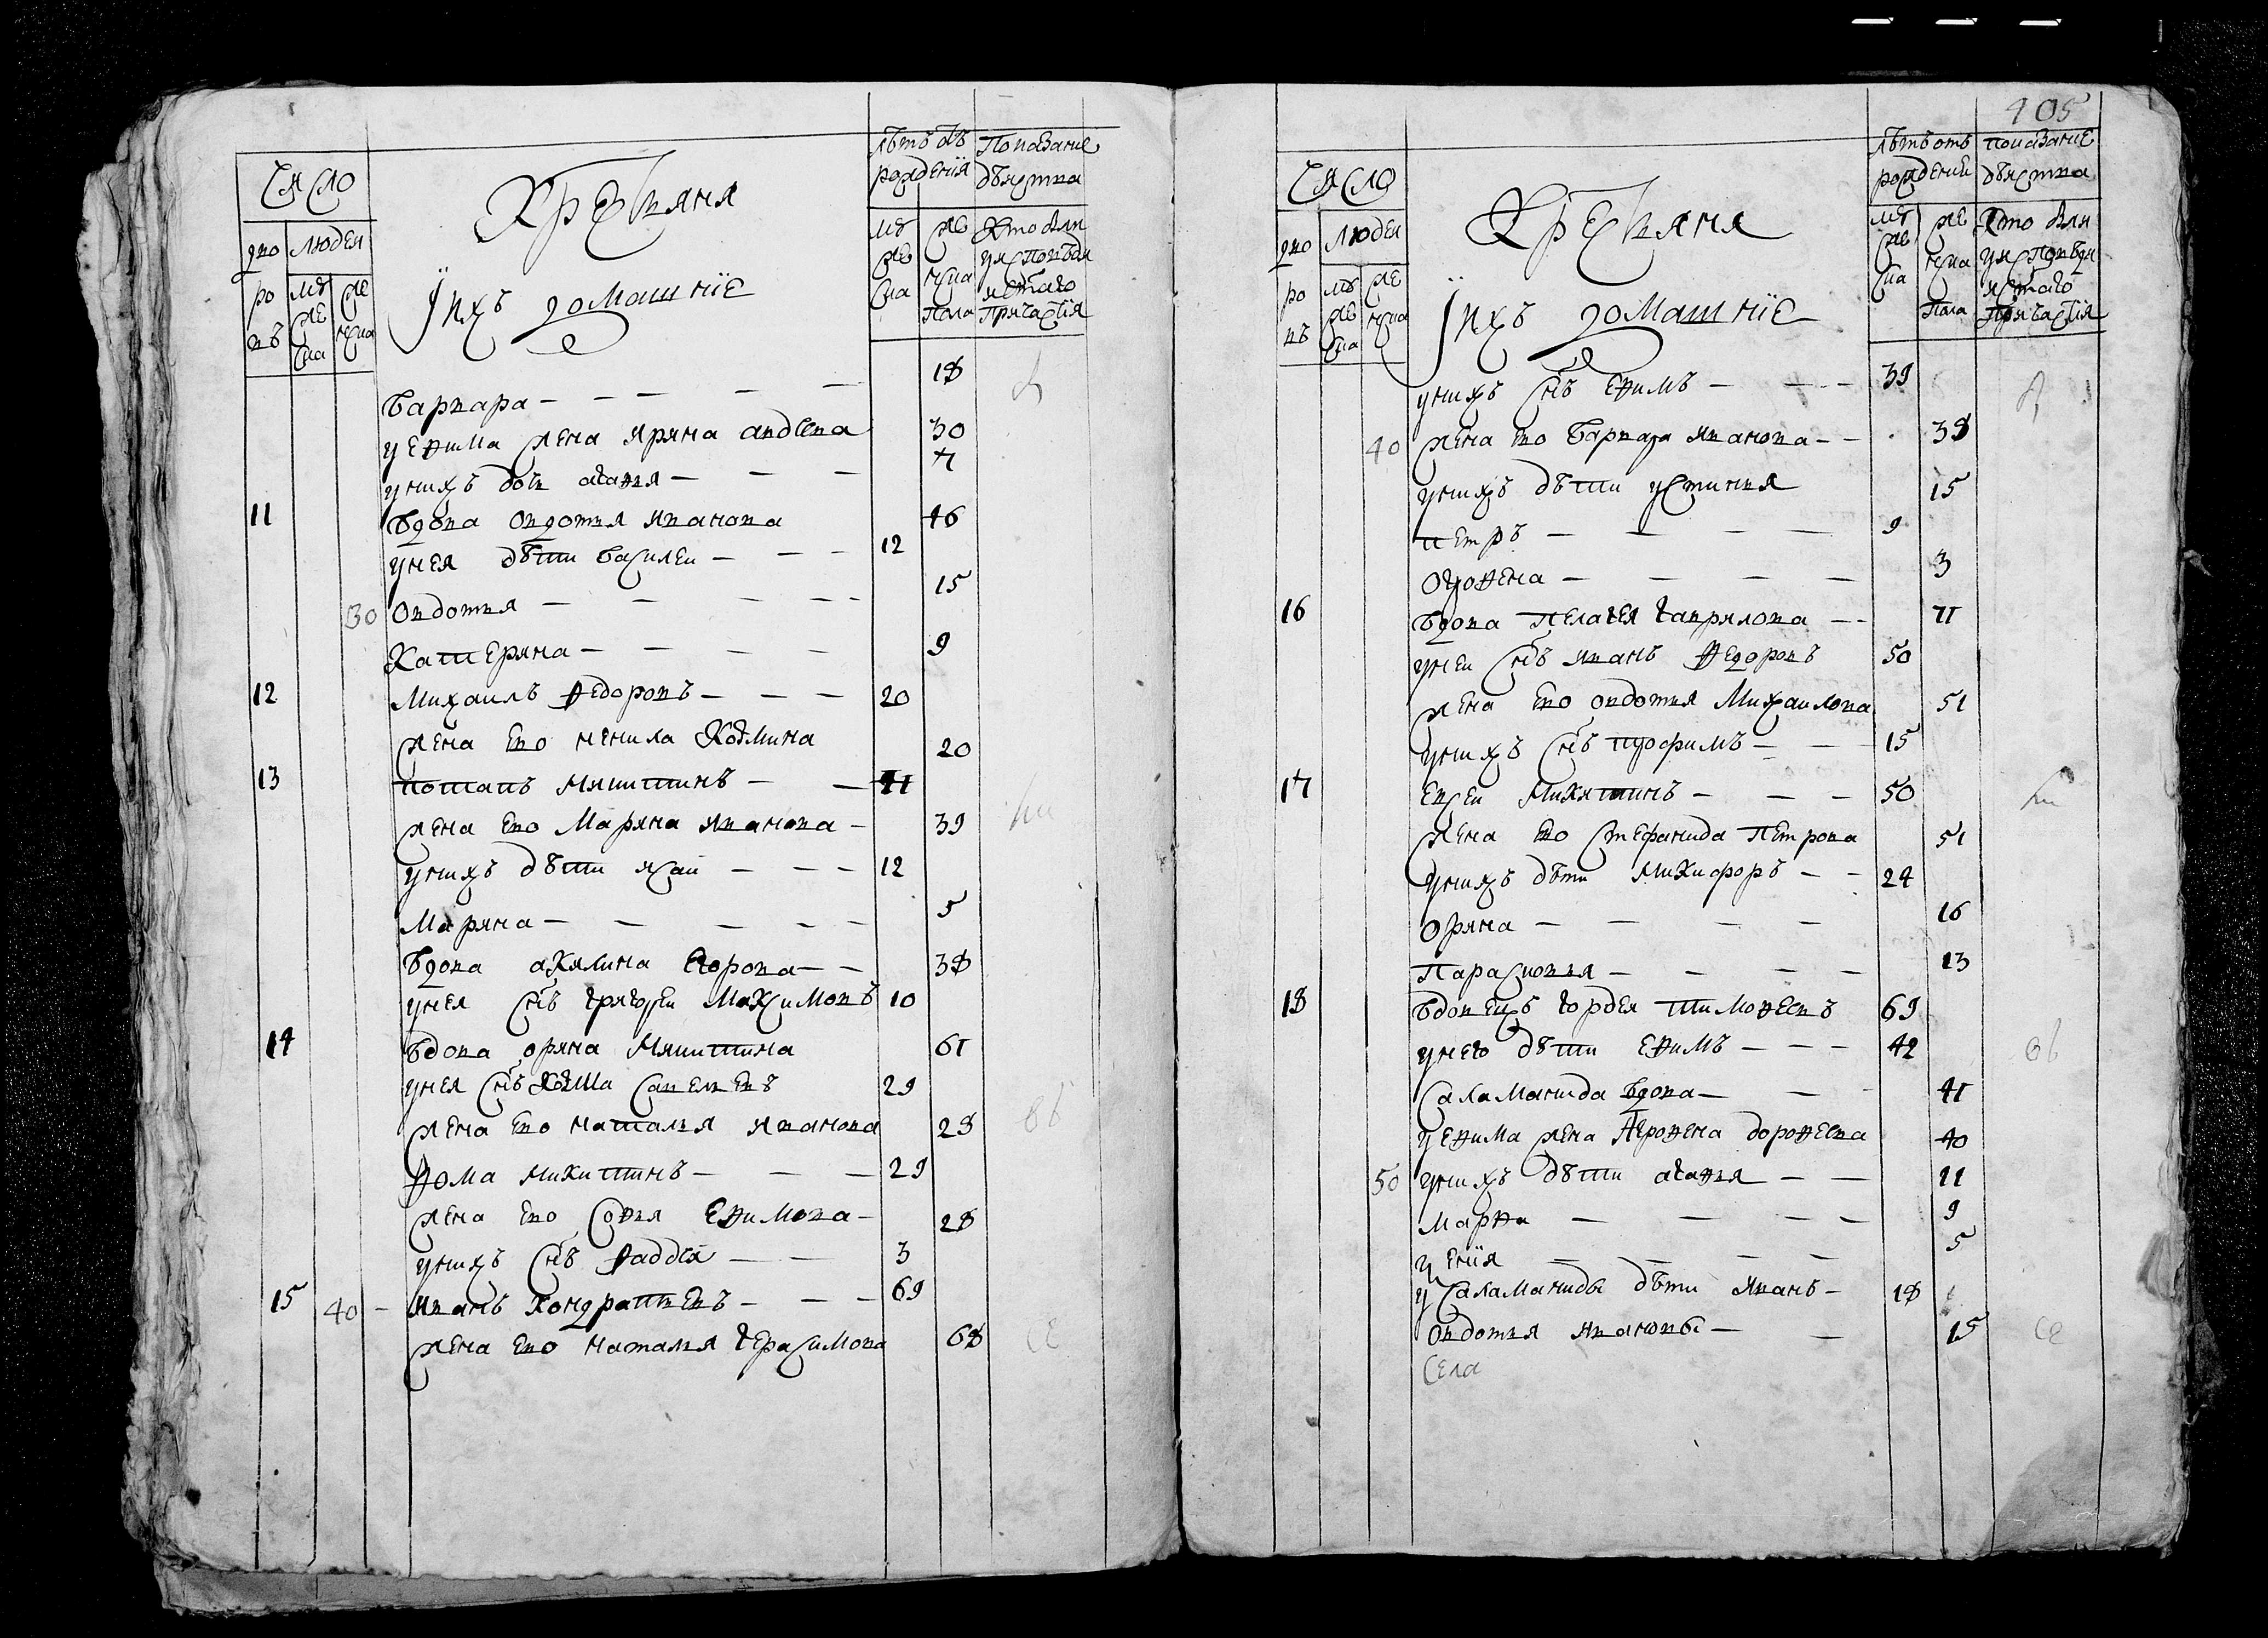 Число
дворовъ
людей
мужеска
женска
Крестьяня
И ихъ домашніе
Лѣтъ отъ рожденія
мужеска
женска пола
Показаніе действа
Кто былъ у исповеди и святаго причастія
Варвара — — — — 18
у Ефима жена Ирина Авдеева 30
у нихъ дочь Агафья — — — 7
11 Вдова Овдотья Иванова 46
у нея дѣти Василеи — — — 12
30 Овдотья — — — — 15
Катерина — — — — 9
12 Михаилъ Федоровъ — — — 20
жена ево Ненила Козмина 20
13 Потапъ Никитинъ — — 41
жена ево Марина Иванова — 39
у нихъ дѣти Исаи — — — 12
Марина — — — — 5
Вдова Акилина Егорова — — 38
у нея снъ Григореи Максимовъ 10
14 Вдова Орина Никитина 61
у нея снъ Козма Савельевъ 29
жена ево Наталья Иванова 28
Фома Никитинъ — — — 29
жена ево Софья Ефимова — 28
у нихъ снъ Фаддеи — — 3
15 40 — Иванъ Кондратьевъ — — — 69
жена ево Наталья Герасимова 68
405
Число
дворовъ
людей
мужеска
женска
Крестьяня
И ихъ домашніе
Лѣтъ отъ рожденіи
мужеска
женска пола
Показаніе действа
Кто былъ у исповеди и святаго причастія
у нихъ снъ Ефимъ — — — 39
40 жена ево Варвара Иванова — — 38
у нихъ дѣти Устинья 15
Петръ — — — — 9
Афрофена — — — — 3
16 Вдова Пелагея Гаврилова — — 71
у неи снъ Иванъ Федоровъ 50
жена ево Овдотья Михаилова 51
у нихъ снъ Трофимъ — — 15
17 Евсеи Никитинъ — — — 50
жена ево Стефанида Петрова 51
у нихъ дѣти Никифоръ — — 24
Орина — — — — 16
Парасковья — — — — 13
18 Вдовецъ Гордеи Тимофеевъ 69
у него дѣти Ефимъ — — — 42
Саламанида вдова — — — 41
у Ефима жена Афрофена Дорофеева 40
50 у нихъ дѣти Агафья — — 11
Марфа — — — — 9
Ксенія — — — — 5
у Саламаниды дѣти Иванъ — 18
Овдотья Ивановы — — 15
Села